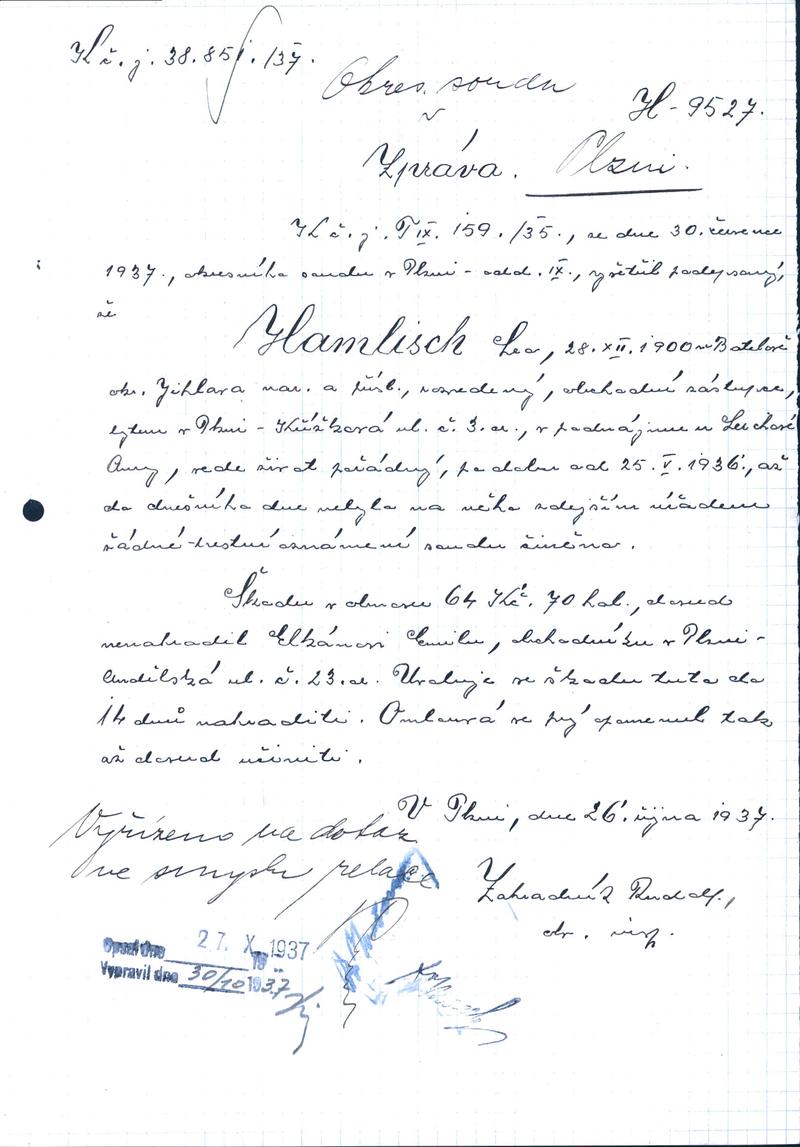 K č. j. 38.851./37.
Okres. soudu
v
H - 9527.
Zpráva. Plzni.
K č. j. T IX. 159./35., ze dne 30. července
1937., okresního soudu v Plzni - odd. IX., vyšetřil podepsaný,
že
Hamlisch Leo, 28.XII.1900 v Batelově
okr. Jihlava nar. a přísl., rozvedený, obchodní zástupce,
bytem v Plzni - Křížková ul. č. 3.a., v podnájmu u
Anny, vede život pořádný, po dobu od 25.V.1936., až
do dnešního dne nebylo na něho zdejším úřadem
žádné trestní oznámení soudu činěno.
Škodu v obnosu 64 Kč. 70 hal., dosud
nenahradil Elkánovi Emilu, obchodníku v Plzni -
Andělská ul. č. 23.a. Uvoluje se škodu tuto do
14 dnů nahraditi. Omlouvá se prý opomenul tak
až dosud učiniti.
V Plzni, dne 26. října 1937.
Vyřízeno na dotaz
ve smyslu relace
Zahradník Rudolf,
Opsal dne 27. X. 1937
Vypravil dne 30/10 1937